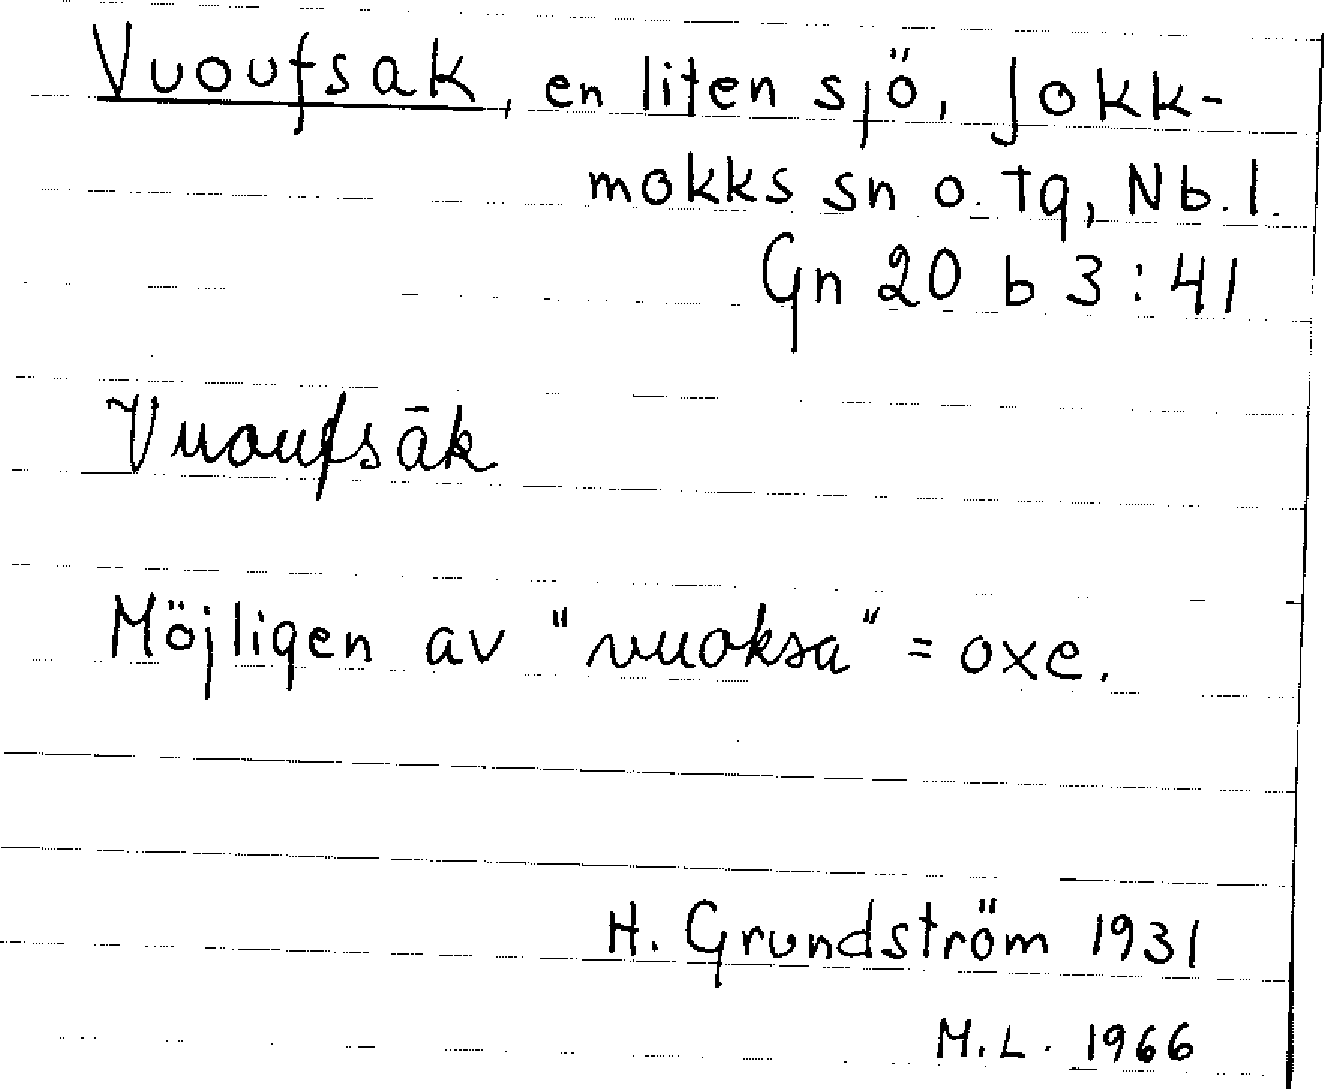 Vuoufsak, en liten sjö, Jokk-
mokks sn o. tg, Nb.l.
Gn 20 b 3:41
Vuoufsāk
Möjligen av "vuoksa" = oxe.
H. Grundström 1931
M.L. 1966